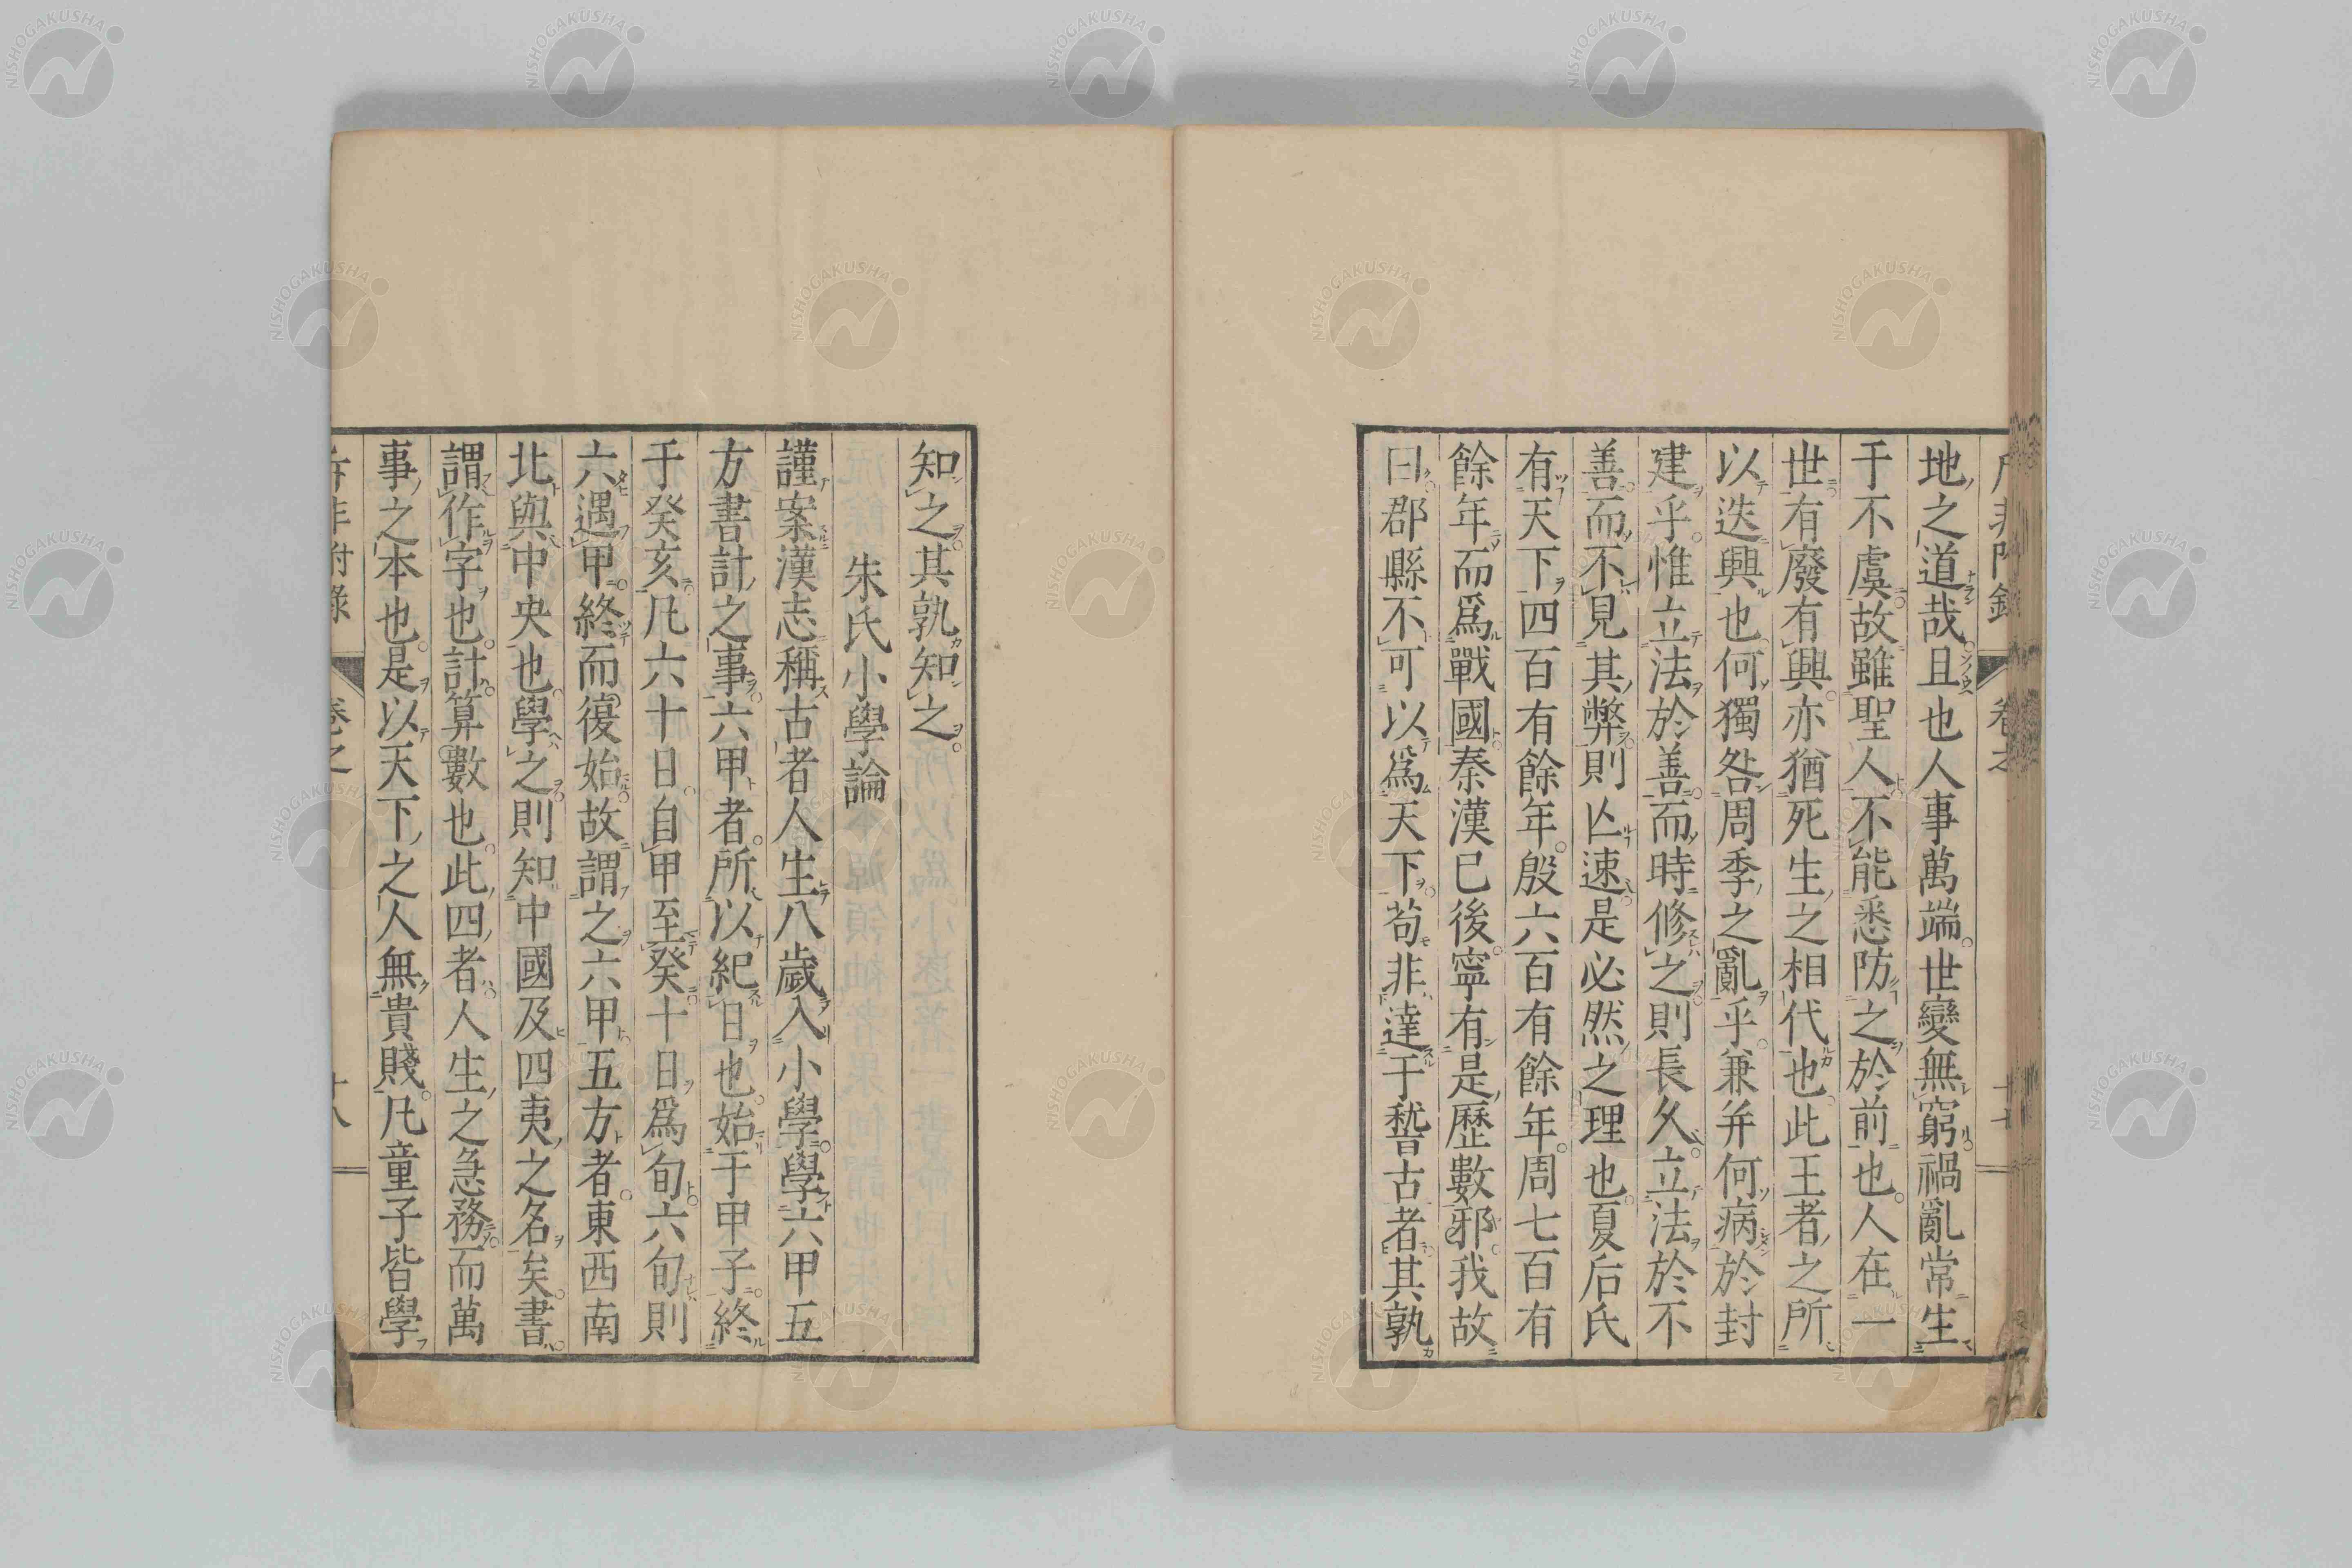 地之道哉且也人事萬端世變無窮禍亂常生
于不虞故雖聖人不能悉防之於前也人在一
世有廢有興亦猶死生之相代也此王者之所
以迭興也何獨咎周季之亂乎兼并何病於封
建乎惟立法於善而時修之則長久立法於不
善而不見其弊則亡速是必然之理也夏后氏
有天下四百有餘年殷六百有餘年周七百有
餘年而爲戰國秦漢已後寧有是歷數邪我故
曰郡縣不可以爲天下苟非達于稽古者其孰
知之其孰知之
朱氏小學論
謹案漢志稱古者人生八歲入小學學六甲五
方書計之事六甲者所以紀日也始于甲子終
于癸亥凡六十日自甲至癸十日爲旬六旬則
六遇甲終而復始故謂之六甲五方者東西南
北與中央也學之則知中國及四夷之名矣書
謂作字也計算數也此四者人生之急務而萬
事之本也是以天下之人無貴賤凡童子皆學
非附錄 卷之 十八
NISHOGAKUSHA